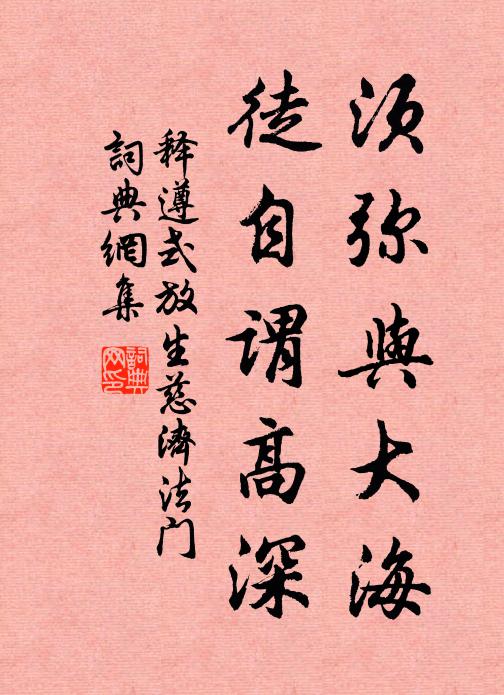 须弥與大海
徒自谓高深
释遵式放生慈濟法门
詞典網集
詞典网印